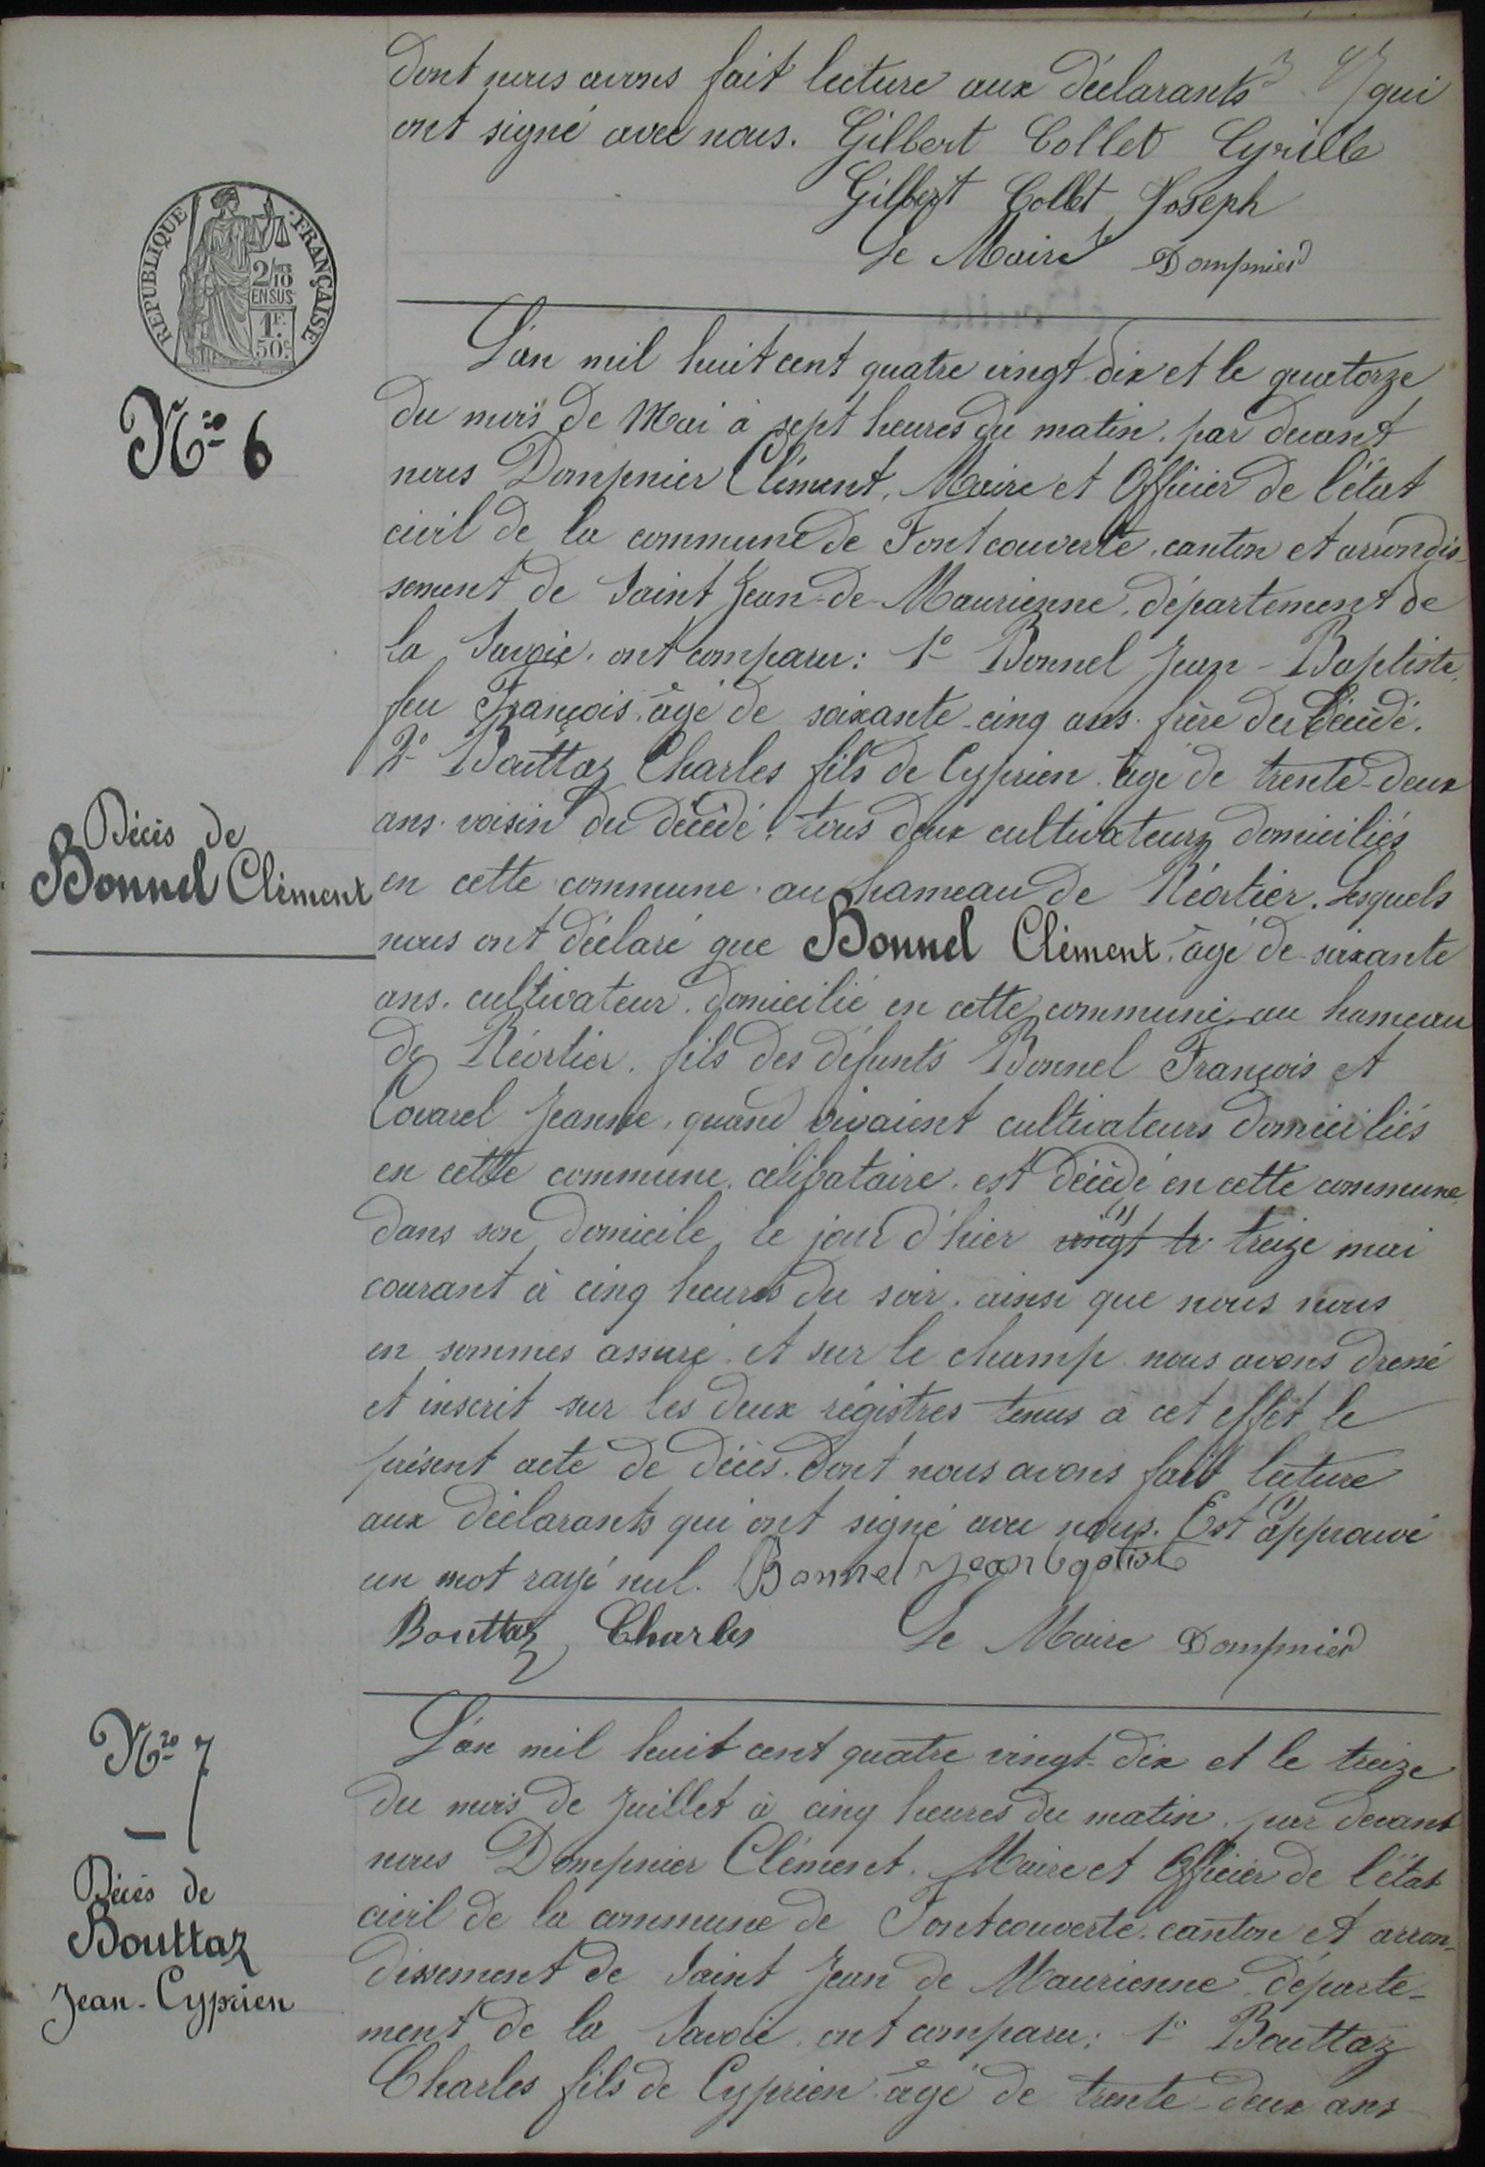 Dont nous avons fait lecture aux déclarants qui
ont signé avec nous. Gilbert Collet Cyrille
Gilbert Collet Joseph
Le Maire Dompnier
RÉPUBLIQUE FRANÇAISE
2/10
EN SUS
1F
50c
No 6
L'an mil huit cent quatre vingt dix et le quatorze
du mois de Mai à sept heures du matin. par devant
nous Dompnier Clément, Maire et Officier de l'état
civil de la commune de Fontcouverte, canton et arrondis-
sement de Saint Jean-de-Maurienne, département de
la Savoie, ont comparu: 1o Bonnel Jean-Baptiste,
feu François, âgé de soixante-cinq ans. frère du décédé.
2o Bouttaz Charles fils de Cyprien âgé de trente-deux
ans. voisin du décédé, tous deux cultivateurs domiciliés
Décès de
Bonnel Clément
en cette commune. au hameau de Réortier. Lesquels
nous ont déclaré que Bonnel Clément, âgé de soixante
ans. cultivateur. domicilié en cette commune, au hameau
de Réortier. fils des défunts Bonnel François et
Covarel Jeanne, quand vivaient cultivateurs domiciliés
en cette commune. célibataire. est décédé en cette commune,
dans son domicile, le jour d'hier (1) vingt tr treize mai
courant à cinq heures du soir. ainsi que nous nous
en sommes assuré. et sur le champ nous avons dressé
et inscrit sur les deux régistres tenus à cet effet le
présent acte de décès. Dont nous avons fait lecture
aux déclarants qui ont signé avec nous. Est (1) approuvé
un mot rayé nul. Bonnel Jean Bqatist
Bouttaz Charles Le Maire Dompnier
No 7
L'an mil huit cent quatre vingt-dix et le treize
du mois de Juillet à cinq heures du matin. par devant
nous Dompnier Clément. Maire et Officier de l'état
Décès de
Bouttaz
Jean-Cyprien
civil de la commune de Fontcouverte. canton et arron-
dissement de Saint Jean de Maurienne, départe-
ment de la Savoie, ont comparu: 1o Bouttaz
Charles fils de Cyprien âgé de trente-deux ans